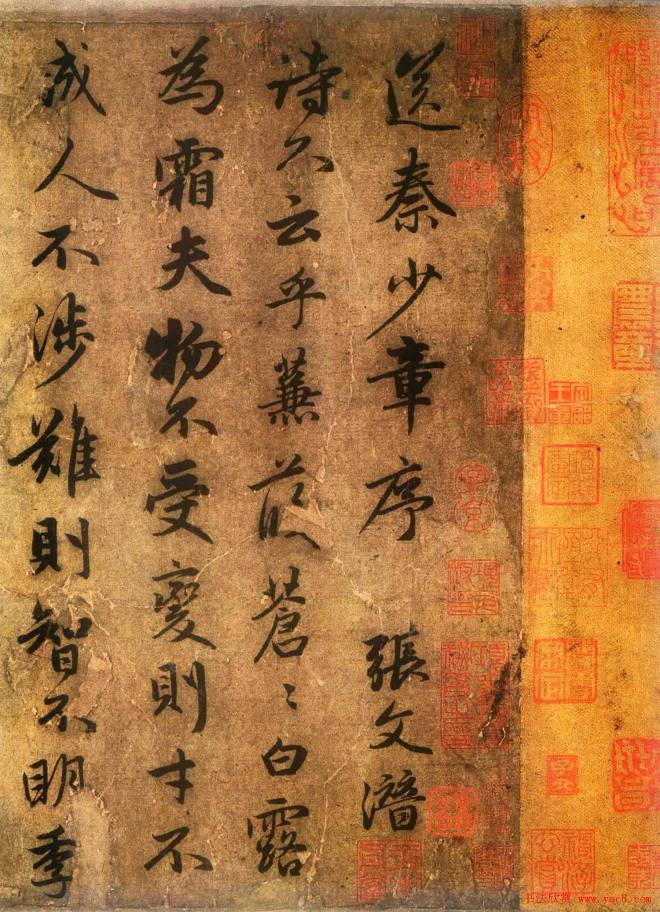 送秦少章序 張文潛
詩不云乎蒹葭蒼〻白露
為霜夫物不受變則才不
成人不涉難則智不明季
书法欣赏 www.yac8.com